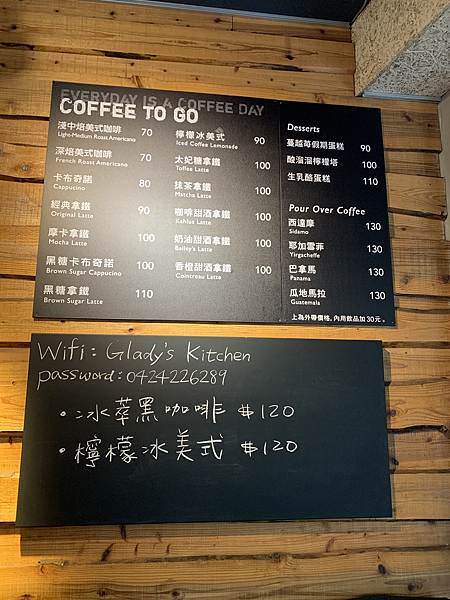 EVERYDAY IS A COFFEE DAY
COFFEE TO GO
淺中焙美式咖啡 70
Light-Medium Roast Americano
深焙美式咖啡 70
French Roast Americano
卡布奇諾 80
Cappucino
經典拿鐵 90
Original Latte
摩卡拿鐵 100
Mocha Latte
黑糖卡布奇諾 100
Brown Sugar Cappucino
黑糖拿鐵 110
Brown Sugar Latte
檸檬冰美式 90
Iced Coffee Lemonade
太妃糖拿鐵 100
Toffee Latte
抹茶拿鐵 100
Matcha Latte
咖啡甜酒拿鐵 100
Kahlua Latte
奶油甜酒拿鐵 100
Bailey's Latte
香橙甜酒拿鐵 100
Cointreau Latte
Desserts
蔓越莓假期蛋糕 90
酸溜溜檸檬塔 100
生乳酪蛋糕 110
Pour Over Coffee
西達摩 130
Sidamo
耶加雪菲 130
Yirgacheffe
巴拿馬 130
Panama
瓜地馬拉 130
Guatemala
上為外帶價格，內用飲品加30元。
Wifi: Glady's Kitchen
password: 0424226289
·冰萃黑咖啡 $120
·檸檬冰美式 $120